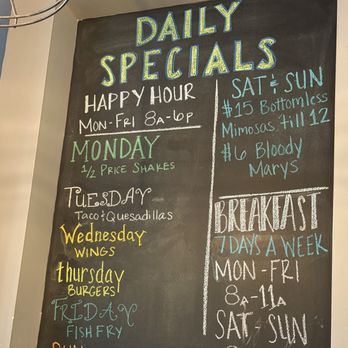 DAILY
SPECIALS
HAPPY HOUR
MON-FRI 8A-6P
MONDAY
1/2 PRICE SHAKES
TUESDAY
Taco & Quesadillas
Wednesday
WINGS
thursday
BURGERS
FRIDAY
FISH FRY
SAT & SUN
$15 Bottomless
Mimosas till 12
$6 Bloody
Marys
BREAKFAST
7 DAYS A WEEK
MON - FRI
8A-11A
SAT - SUN